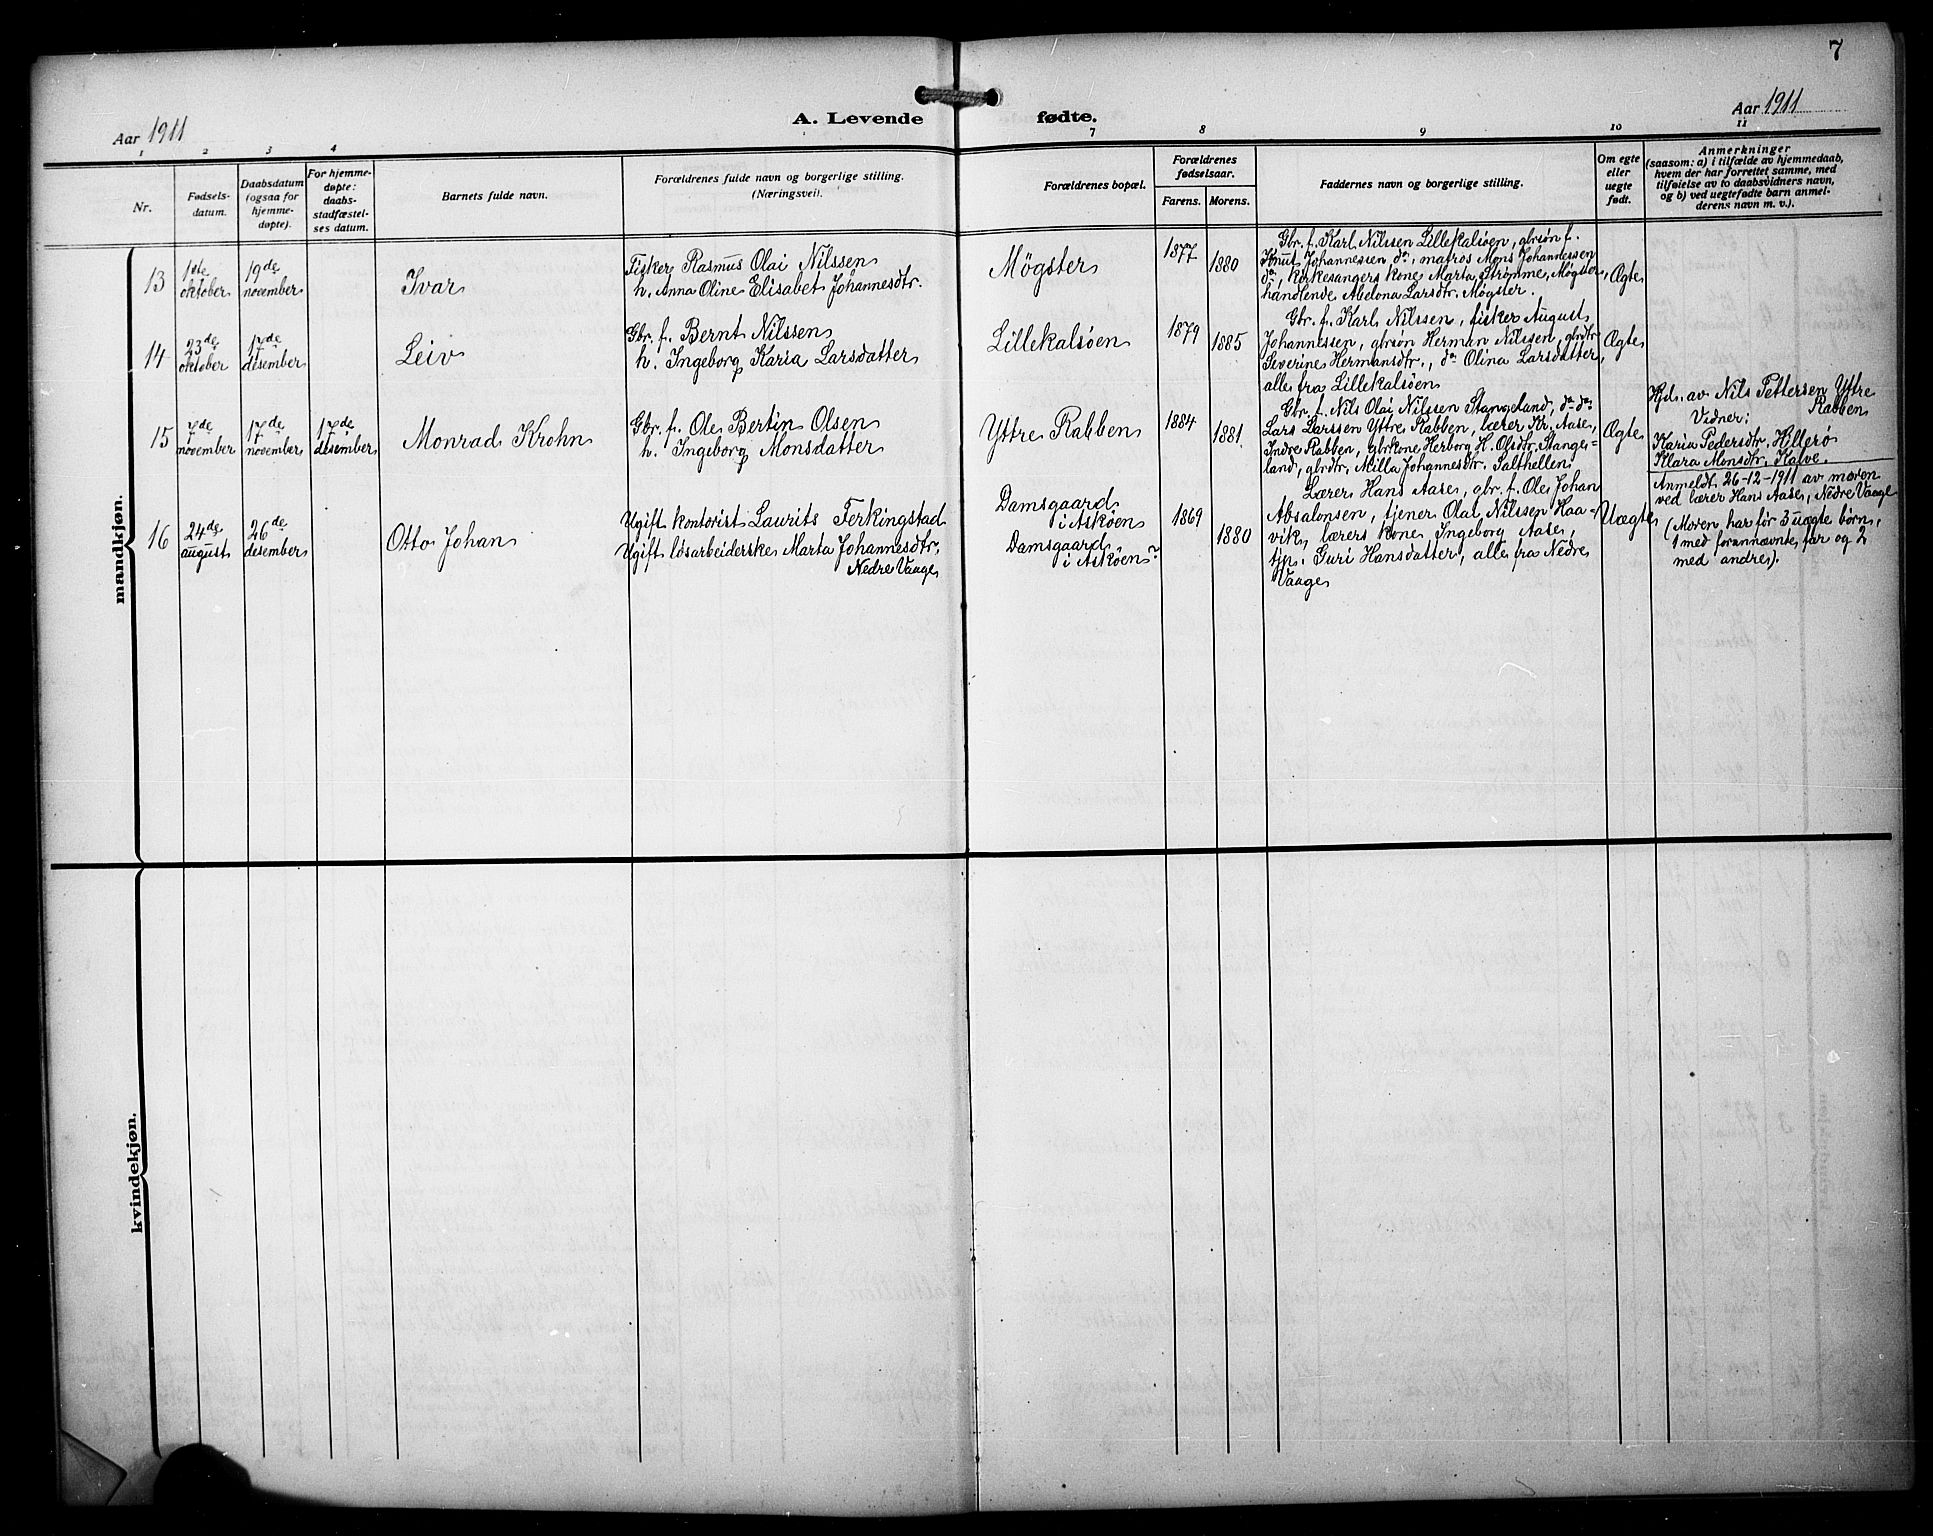 7
Aar 1911
A. Levende fødte.
Aar 1911
1 2 3 4 7 8 9 10 11
Nr.
Fødsels-
datum.
Daabsdatum
(ogsaa for
hjemme-
døpte).
For hjemme-
døpte:
daabs-
stadfæstel-
ses datum.
Barnets fulde navn.
Forældrenes fulde navn og borgerlige stilling.
(Næringsvei).
Forældrenes bopæl.
Forældrenes
fødselsaar.
Farens. Morens.
Faddernes navn og borgerlige stilling.
Om egte
eller
uegte
født.
Anmerkninger
(saasom: a) i tilfælde av hjemmedaab,
hvem der har forrettet samme, med
tilføielse av to daabsvidners navn,
og b) ved uegtefødte barn anmel-
derens navn m. v.).
mandkjøn.
13
1ste
oktober
19de
november
Ivar
Fisker Rasmus Olai Nilssen
h. Anna Oline Elisabet Johannesdtr.
Møgster
1877
1880
Gbr. f. Karl Nilssen Lillekalsøen, gbrsøn f.
Knut Johannessen do, matros Mons Johannessen
do, kirkesangers kone Marta Strømme, Møgster,
handlende Abelona Larsdtr. Møgster.
Ægte
14
23de
oktober
17de
desember
Leiv
Gbr. f. Bernt Nilssen
h. Ingeborg Karia Larsdatter
Lillekalsøen
1879
1885
Gbr. f. Karl Nilssen, fisker August
Johannessen, gbrsøn Herman Nilssen, gbrdtr
Severine Hermansdtr., do Olina Larsdatter,
alle fra Lillekalsøen
Ægte
15
7de
november
17de
november
17de
desember
Monrad Krohn
Gbr. f. Ole Bertin Olsen
h. Ingeborg Monsdatter
Yttre Rabben
1884
1881
Gbr. f. Nils Olai Nilssen Stangeland, do do
Lars Larssen Yttre Rabben, lærer Kr. Aase,
Indre Rabben, gbrkone Herborg H. Olsdtr. Stange-
land, gbrdtr. Milla Johannesdtr. Salthellen
Ægte
Hjd. av Nils Pettersen Yttre
Rabben
Vidner:
Karia Pedersdtr, Hillerø
Klara Monsdtr. Kalve.
16
24de
august
26de
desember
Otto Johan
Ugift kontorist Laurits Ferkingstad
Ugift løsarbeiderske Marta Johannesdtr,
Nedre Vaage
Damsgaard
i Askøen
Damsgaard
i Askøen?
1869
1880
Lærer Hans Aase, gbr. f. Ole Johan
Absalonsen, tjener Olai Nilssen Haa-
vik, lærers kone, Ingeborg Aase,
tjp. Guri Hansdatter, alle fra Nedre
Vaage
Uægte
Anmeldt 26-12-1911 av moren
ved lærer Hans Aase, Nedre Vaage
(Moren har før 3 uægte børn,
1 med forannævnte far og 2
med andre).
kvindekjøn.